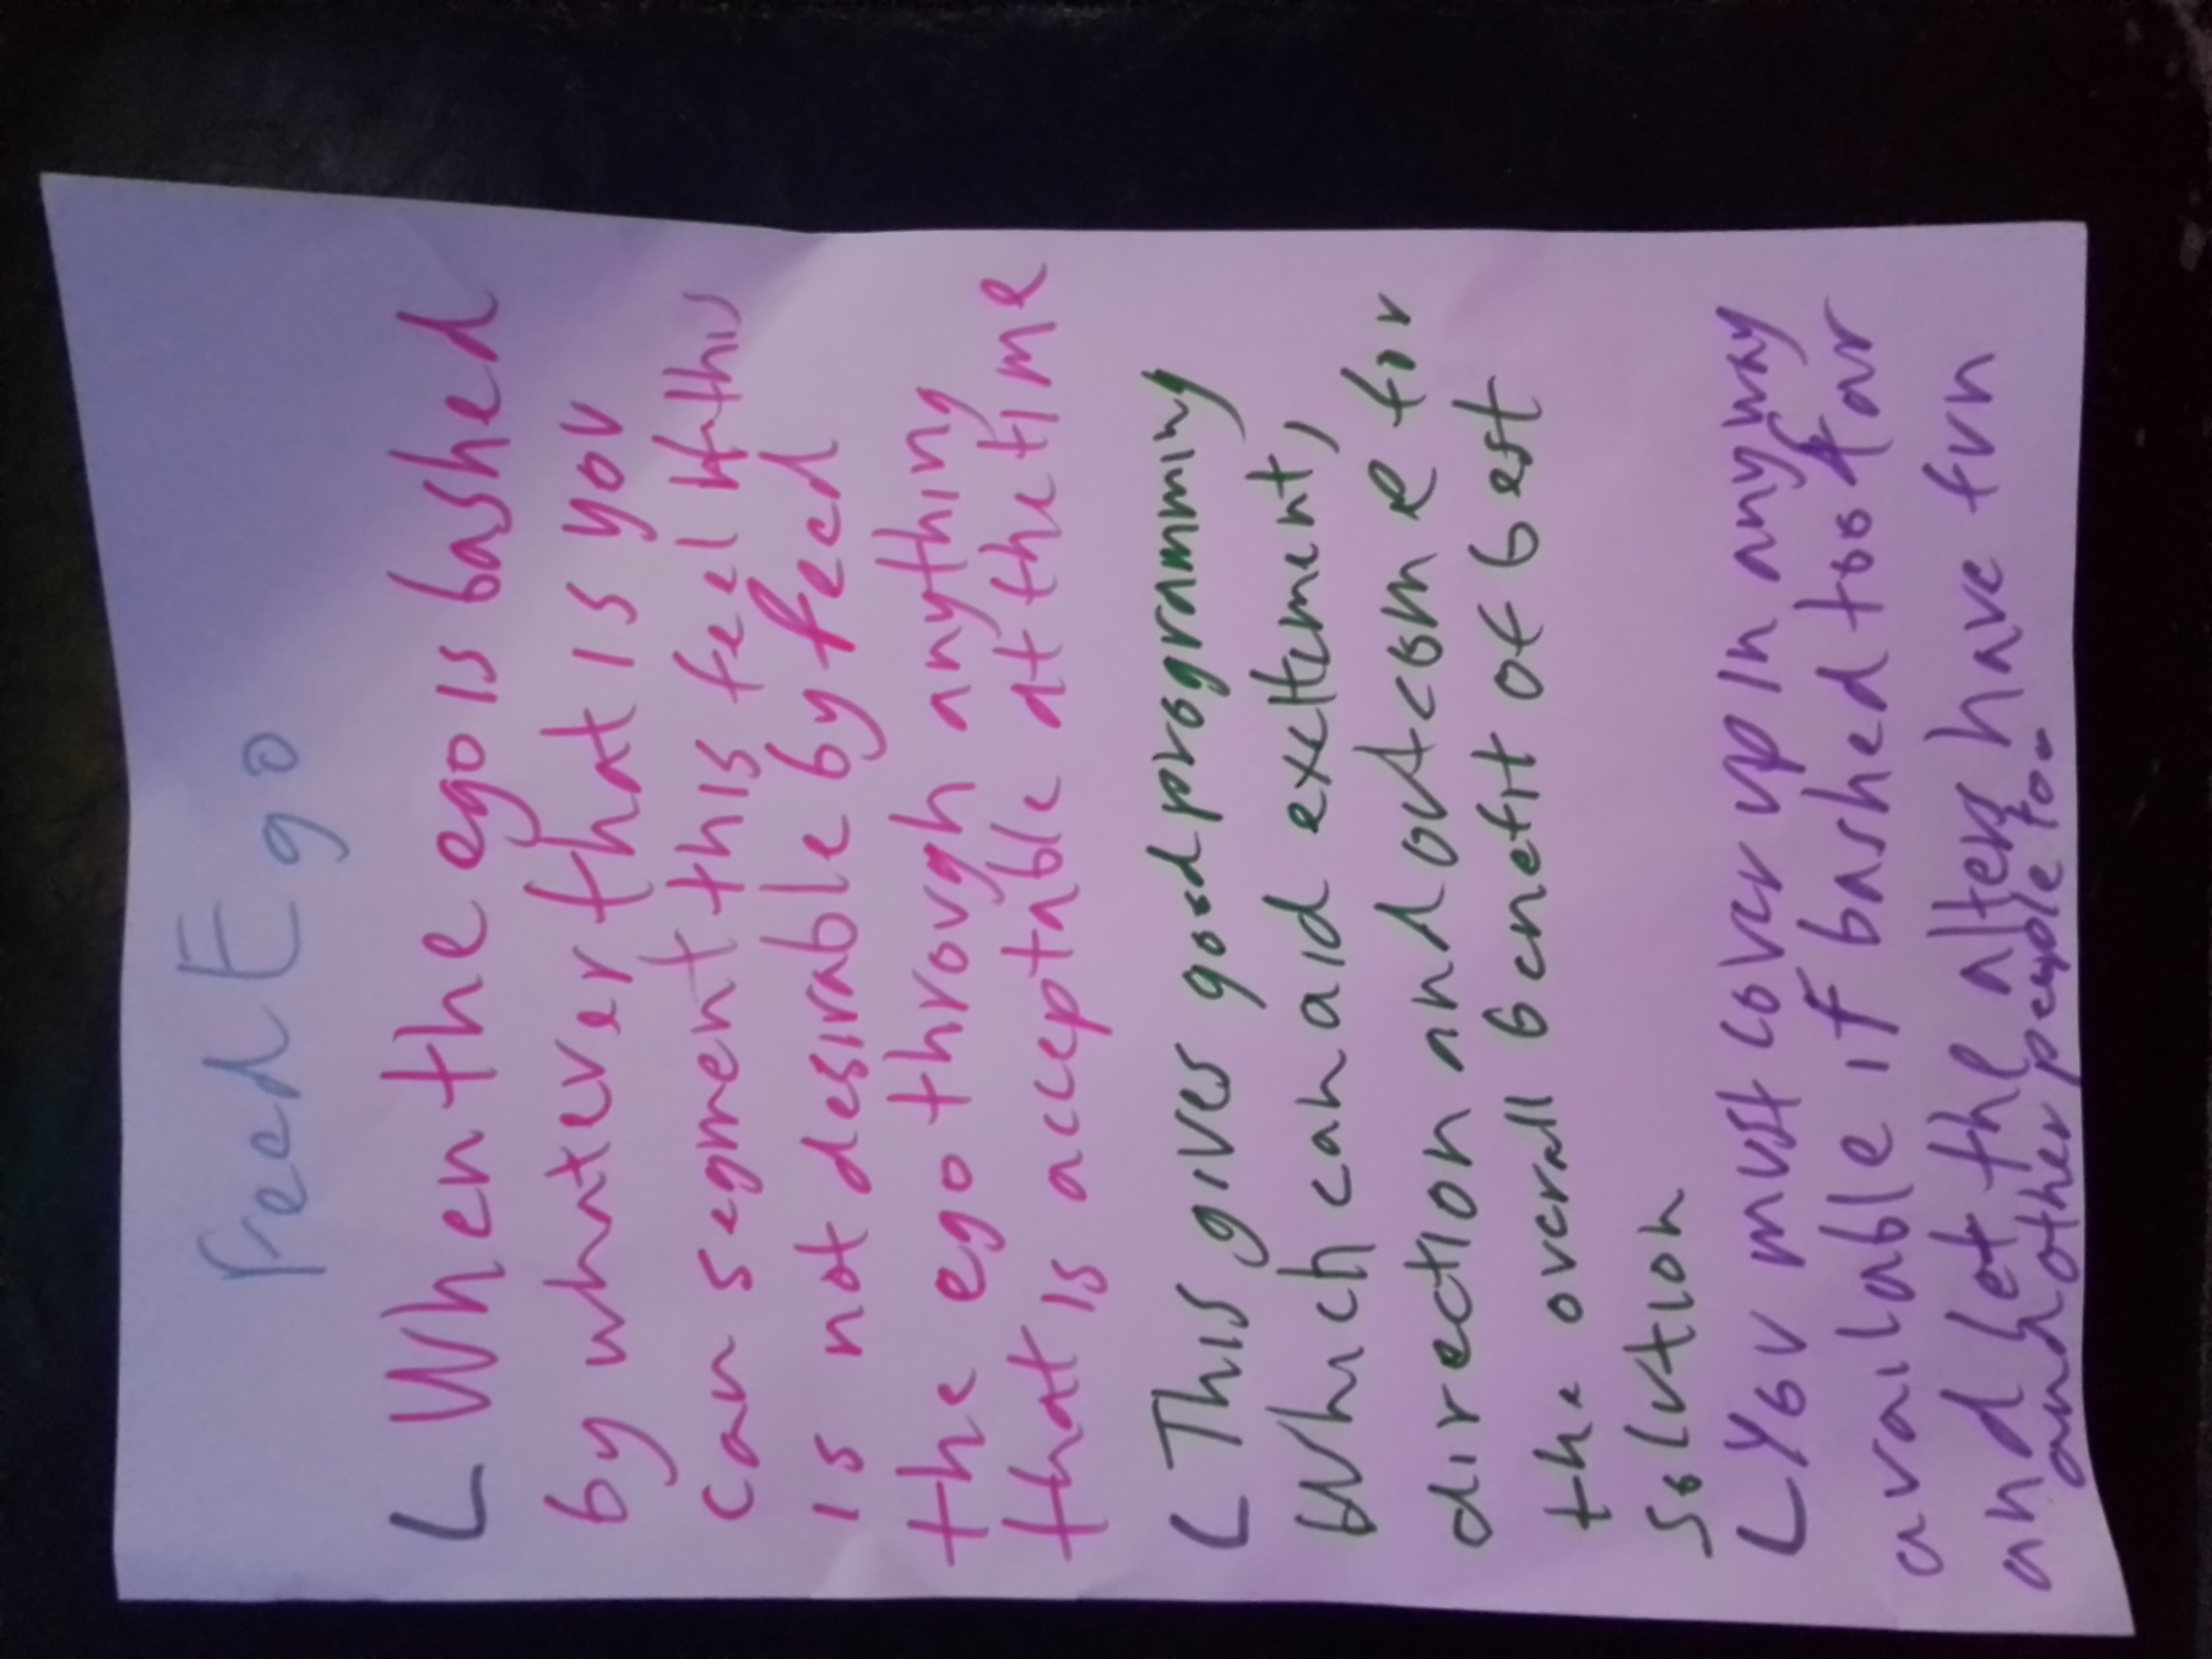 Feed Ego
When the ego is bashed
by whatever that is you
can segment this feel if this
is not desirable by feed
the ego through anything
that is acceptable at the time
This gives good programming
which can aid excitement,
direction and outcome for
the overall benefit of best
solution
You must cover up in anyway
available if bashed too far
and let the alters have fun
and other people too